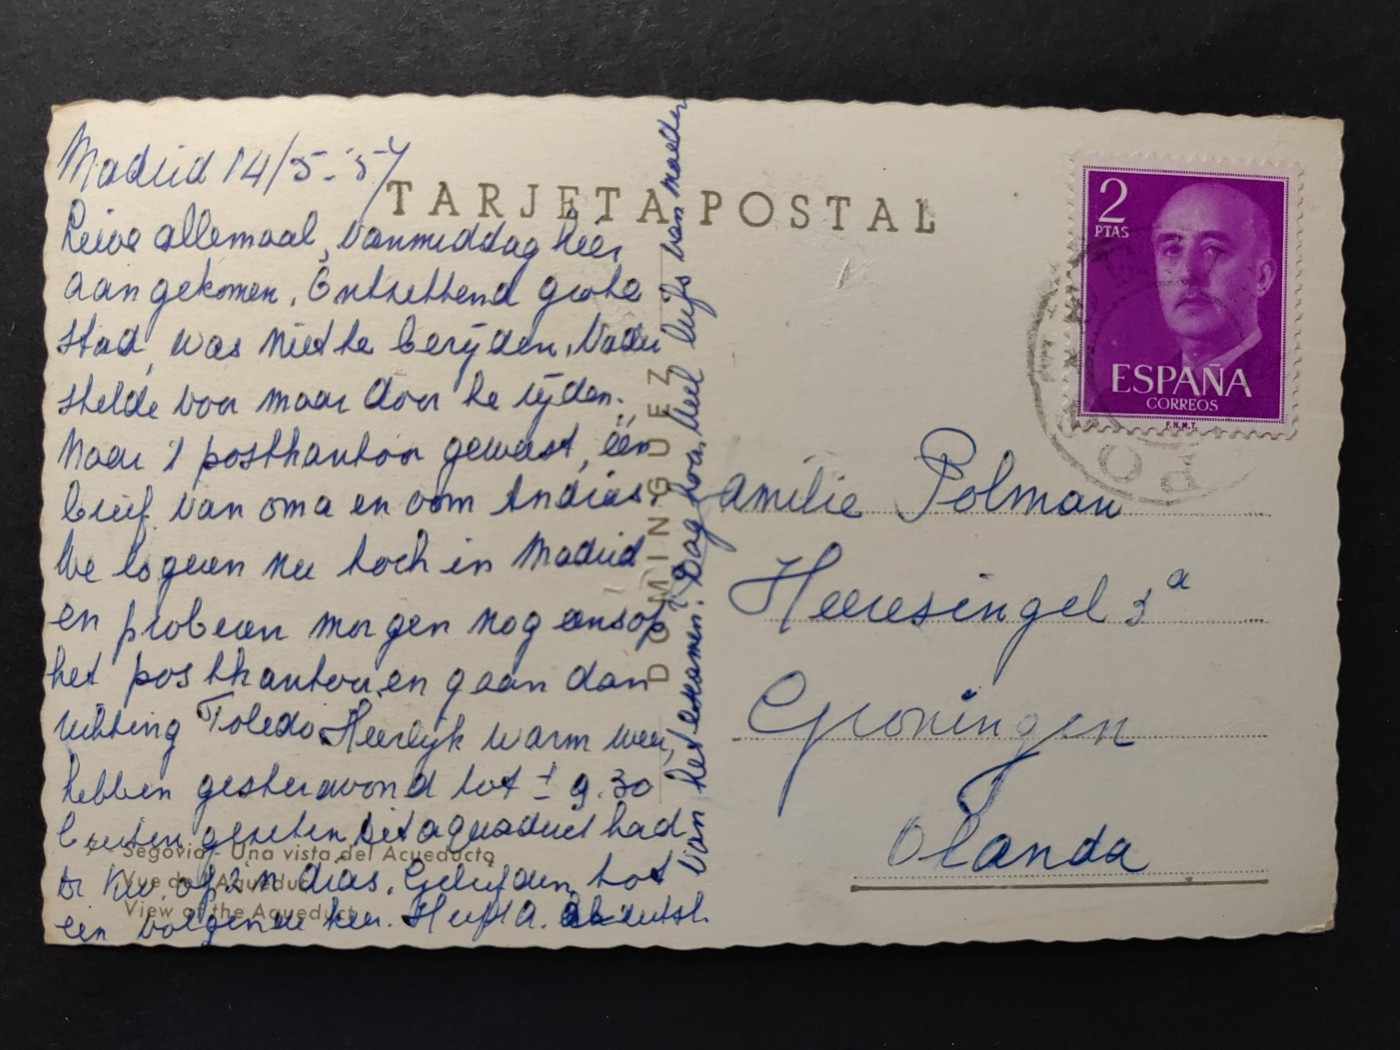 Madrid 14/5-'57
Lieve allemaal, vanmiddag hier
aangekomen. Ontzettend grote
stad, was niet te berijden, Vader
stelde voor maar door te rijden.
Naar 't postkantoor geweest, één
brief van oma en oom Andries.
We logeren nu toch in Madrid
en proberen morgen nog eens op
het postkantoor en gaan dan
richting Toledo Heerlijk warm weer,
hebben gisteravond tot ± 9.30
buiten gezeten, het aquaduct had
ik nu op 2 n dias. Geliefden, tot
een volgende keer. Heeft A. de uitsl.
van het examen? Dag hoor, veel liefs van moeder
TARJETA POSTAL
DOMINGUEZ
7 - Segovia - Una vista del Acueducto
Vue de l'Aqueduc
View of the Aqueduct
2
PTAS
ESPAÑA
CORREOS
F.N.M.T.
Familie Polman
Heeresingel 3a
Groningen
Olanda